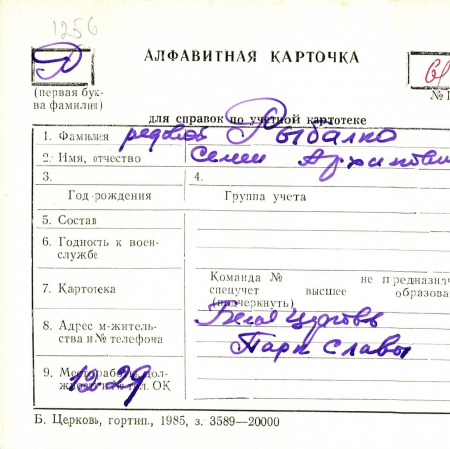 1256
АЛФАВИТНАЯ КАРТОЧКА
Р
(первая бук-
ва фамилии)
для справок по учетной картотеке
1. Фамилия рядовой Рыбалко
2. Имя, отчество Семен Архипович
3.
Год рождения
4.
Группа учета
5. Состав
6. Годность к воен-
службе
7. Картотека
Команда № не предназнач
спецучет высшее образова
(подчеркнуть)
8. Адрес м-жительс-
тва и № телефона
Белая Церковь
Парк Славы
9. Место работы, дол-
жность и № тел. ОК
12-29
Б. Церковь, гортип., 1985, з. 3589—20000